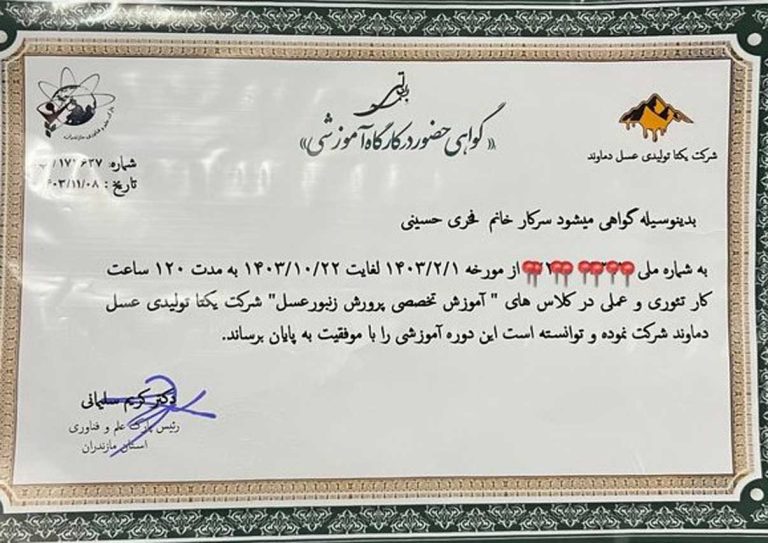 باسمه تعالی
«گواهی حضور در کارگاه آموزشی»
شرکت یکتا تولیدی عسل دماوند
شماره:
تاریخ :
بدینوسیله گواهی میشود سرکار خانم فخری حسینی
به شماره ملی از مورخه ۱۴۰۳/۲/۱ لغایت ۱۴۰۳/۱۰/۲۲ به مدت ۱۲۰ ساعت
کار تئوری و عملی در کلاس های " آموزش تخصصی پرورش زنبورعسل" شرکت یکتا تولیدی عسل
دماوند شرکت نموده و توانسته است این دوره آموزشی را با موفقیت به پایان برساند.
دکتر کریم سلیمانی
رئیس پارک علم و فناوری
استان مازندران